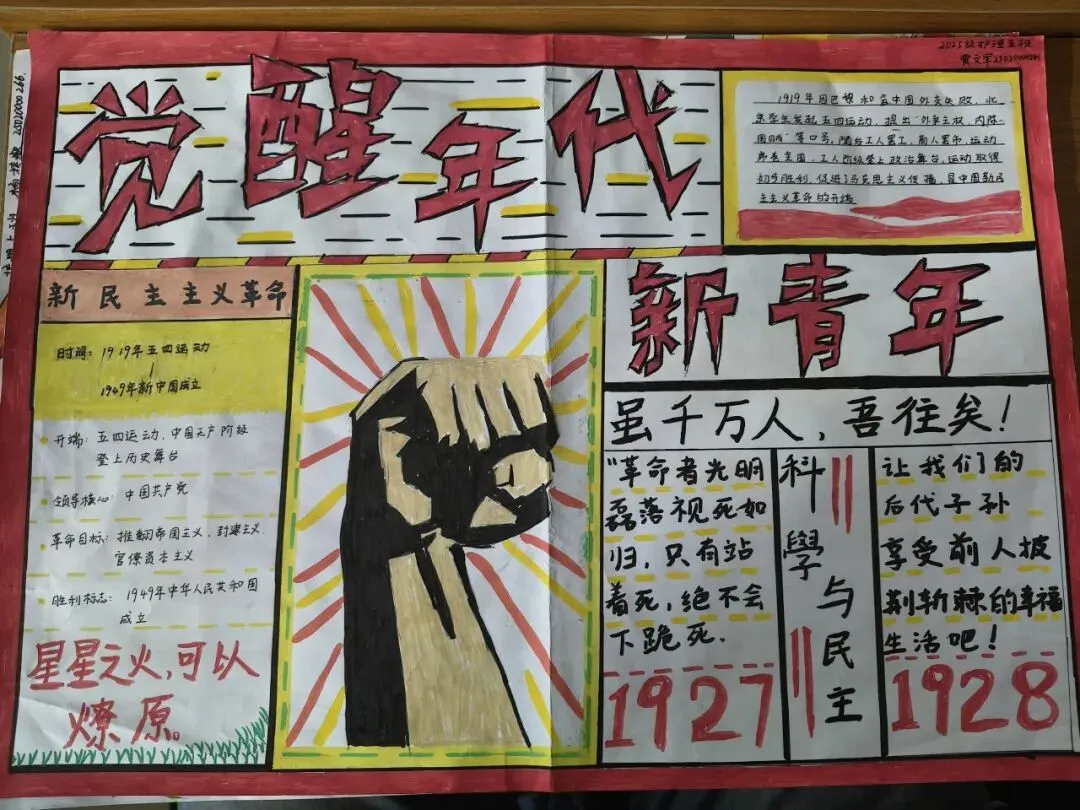 2025级护理五班
觉醒年代
1919年因巴黎和会中国外交失败，北
京学生发起五四运动，提出"外争主权，内除
国贼"等口号，随后工人罢工，商人罢市，运动
席卷全国，工人阶级登上政治舞台，运动取得
初步胜利，促进了马克思主义传播，是中国新民
主主义革命的开端
新民主主义革命
时间：1919年五四运动
1949年新中国成立
开端：五四运动，中国无产阶级
登上历史舞台
领导核心：中国共产党
革命目标：推翻帝国主义、封建主义、
官僚资本主义
胜利标志：1949年中华人民共和国
成立
星星之火，可以
燎原。
新青年
虽千万人，吾往矣！
"革命者光明
磊落视死如
归，只有站
着死，绝不会
下跪死.
1927
科學与民主
让我们的
后代子孙
享受前人披
荆斩棘的幸福
生活吧！
1928